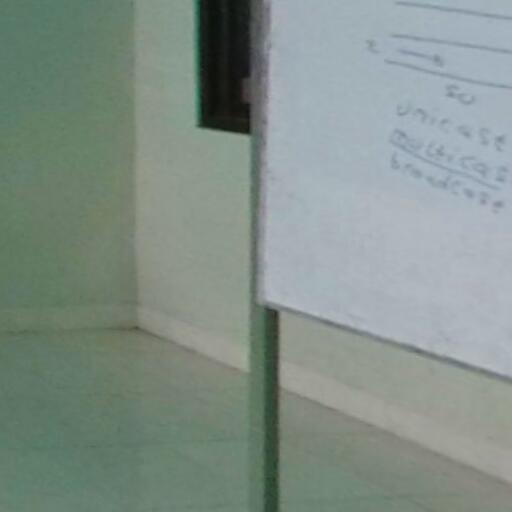 unicast
multicas
broadcast